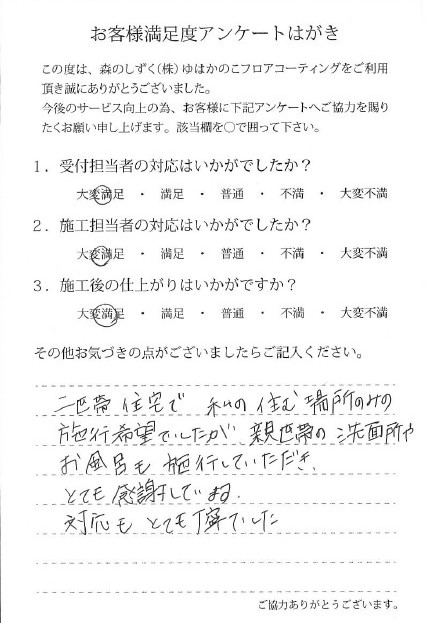 お客様満足度アンケートはがき
この度は、森のしずく(株)ゆはかのこフロアコーティングをご利用
頂き誠にありがとうございました。
今後のサービス向上の為、お客様に下記アンケートへご協力を賜り
たくお願い申し上げます。該当欄を○で囲って下さい。
1. 受付担当者の対応はいかがでしたか？
大変満足 ・ 満足 ・ 普通 ・ 不満 ・ 大変不満
2. 施工担当者の対応はいかがでしたか？
大変満足 ・ 満足 ・ 普通 ・ 不満 ・ 大変不満
3. 施工後の仕上がりはいかがですか？
大変満足 ・ 満足 ・ 普通 ・ 不満 ・ 大変不満
その他お気づきの点がございましたらご記入ください。
二世帯住宅で 私の住む場所のみの
施行希望でしたが 親世帯の洗面所や
お風呂も施行していただき、
とても感謝しています。
対応もとても丁寧でした
ご協力ありがとうございます。